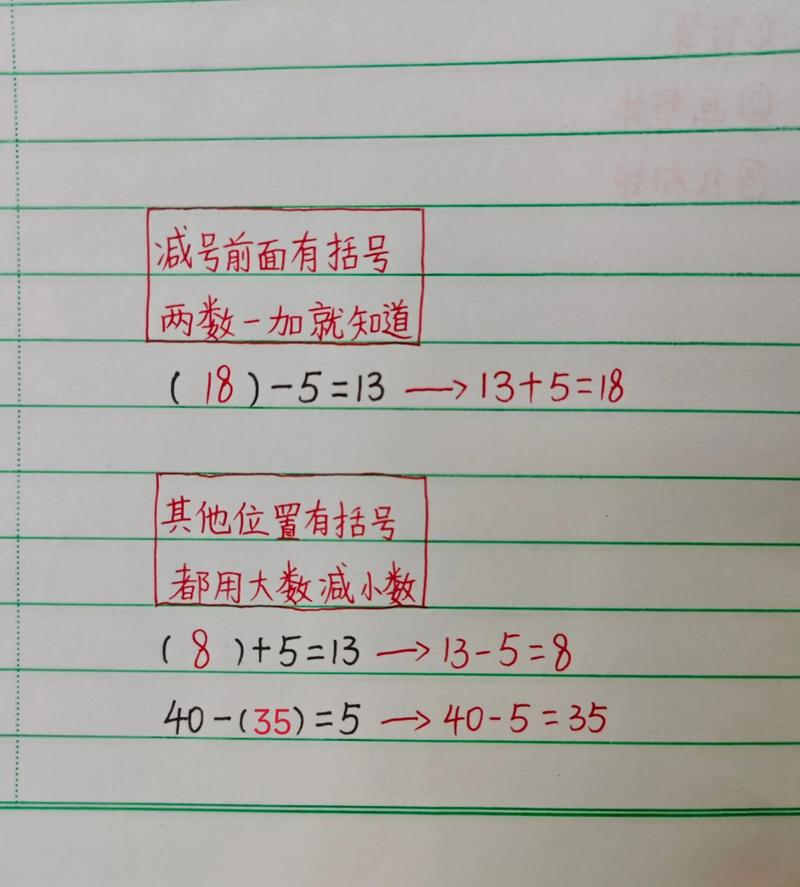 减号前面有括号
两数一加就知道
( 18 )-5=13 → 13+5=18
其他位置有括号
都用大数减小数
( 8 )+5=13 → 13-5=8
40-(35)=5 → 40-5=35